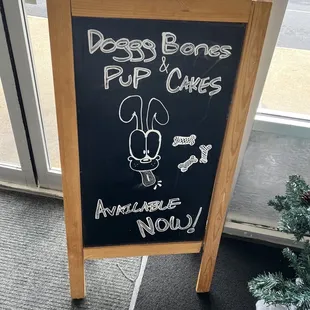 Doggg Bones
&
PuP Cakes
Available
Now!